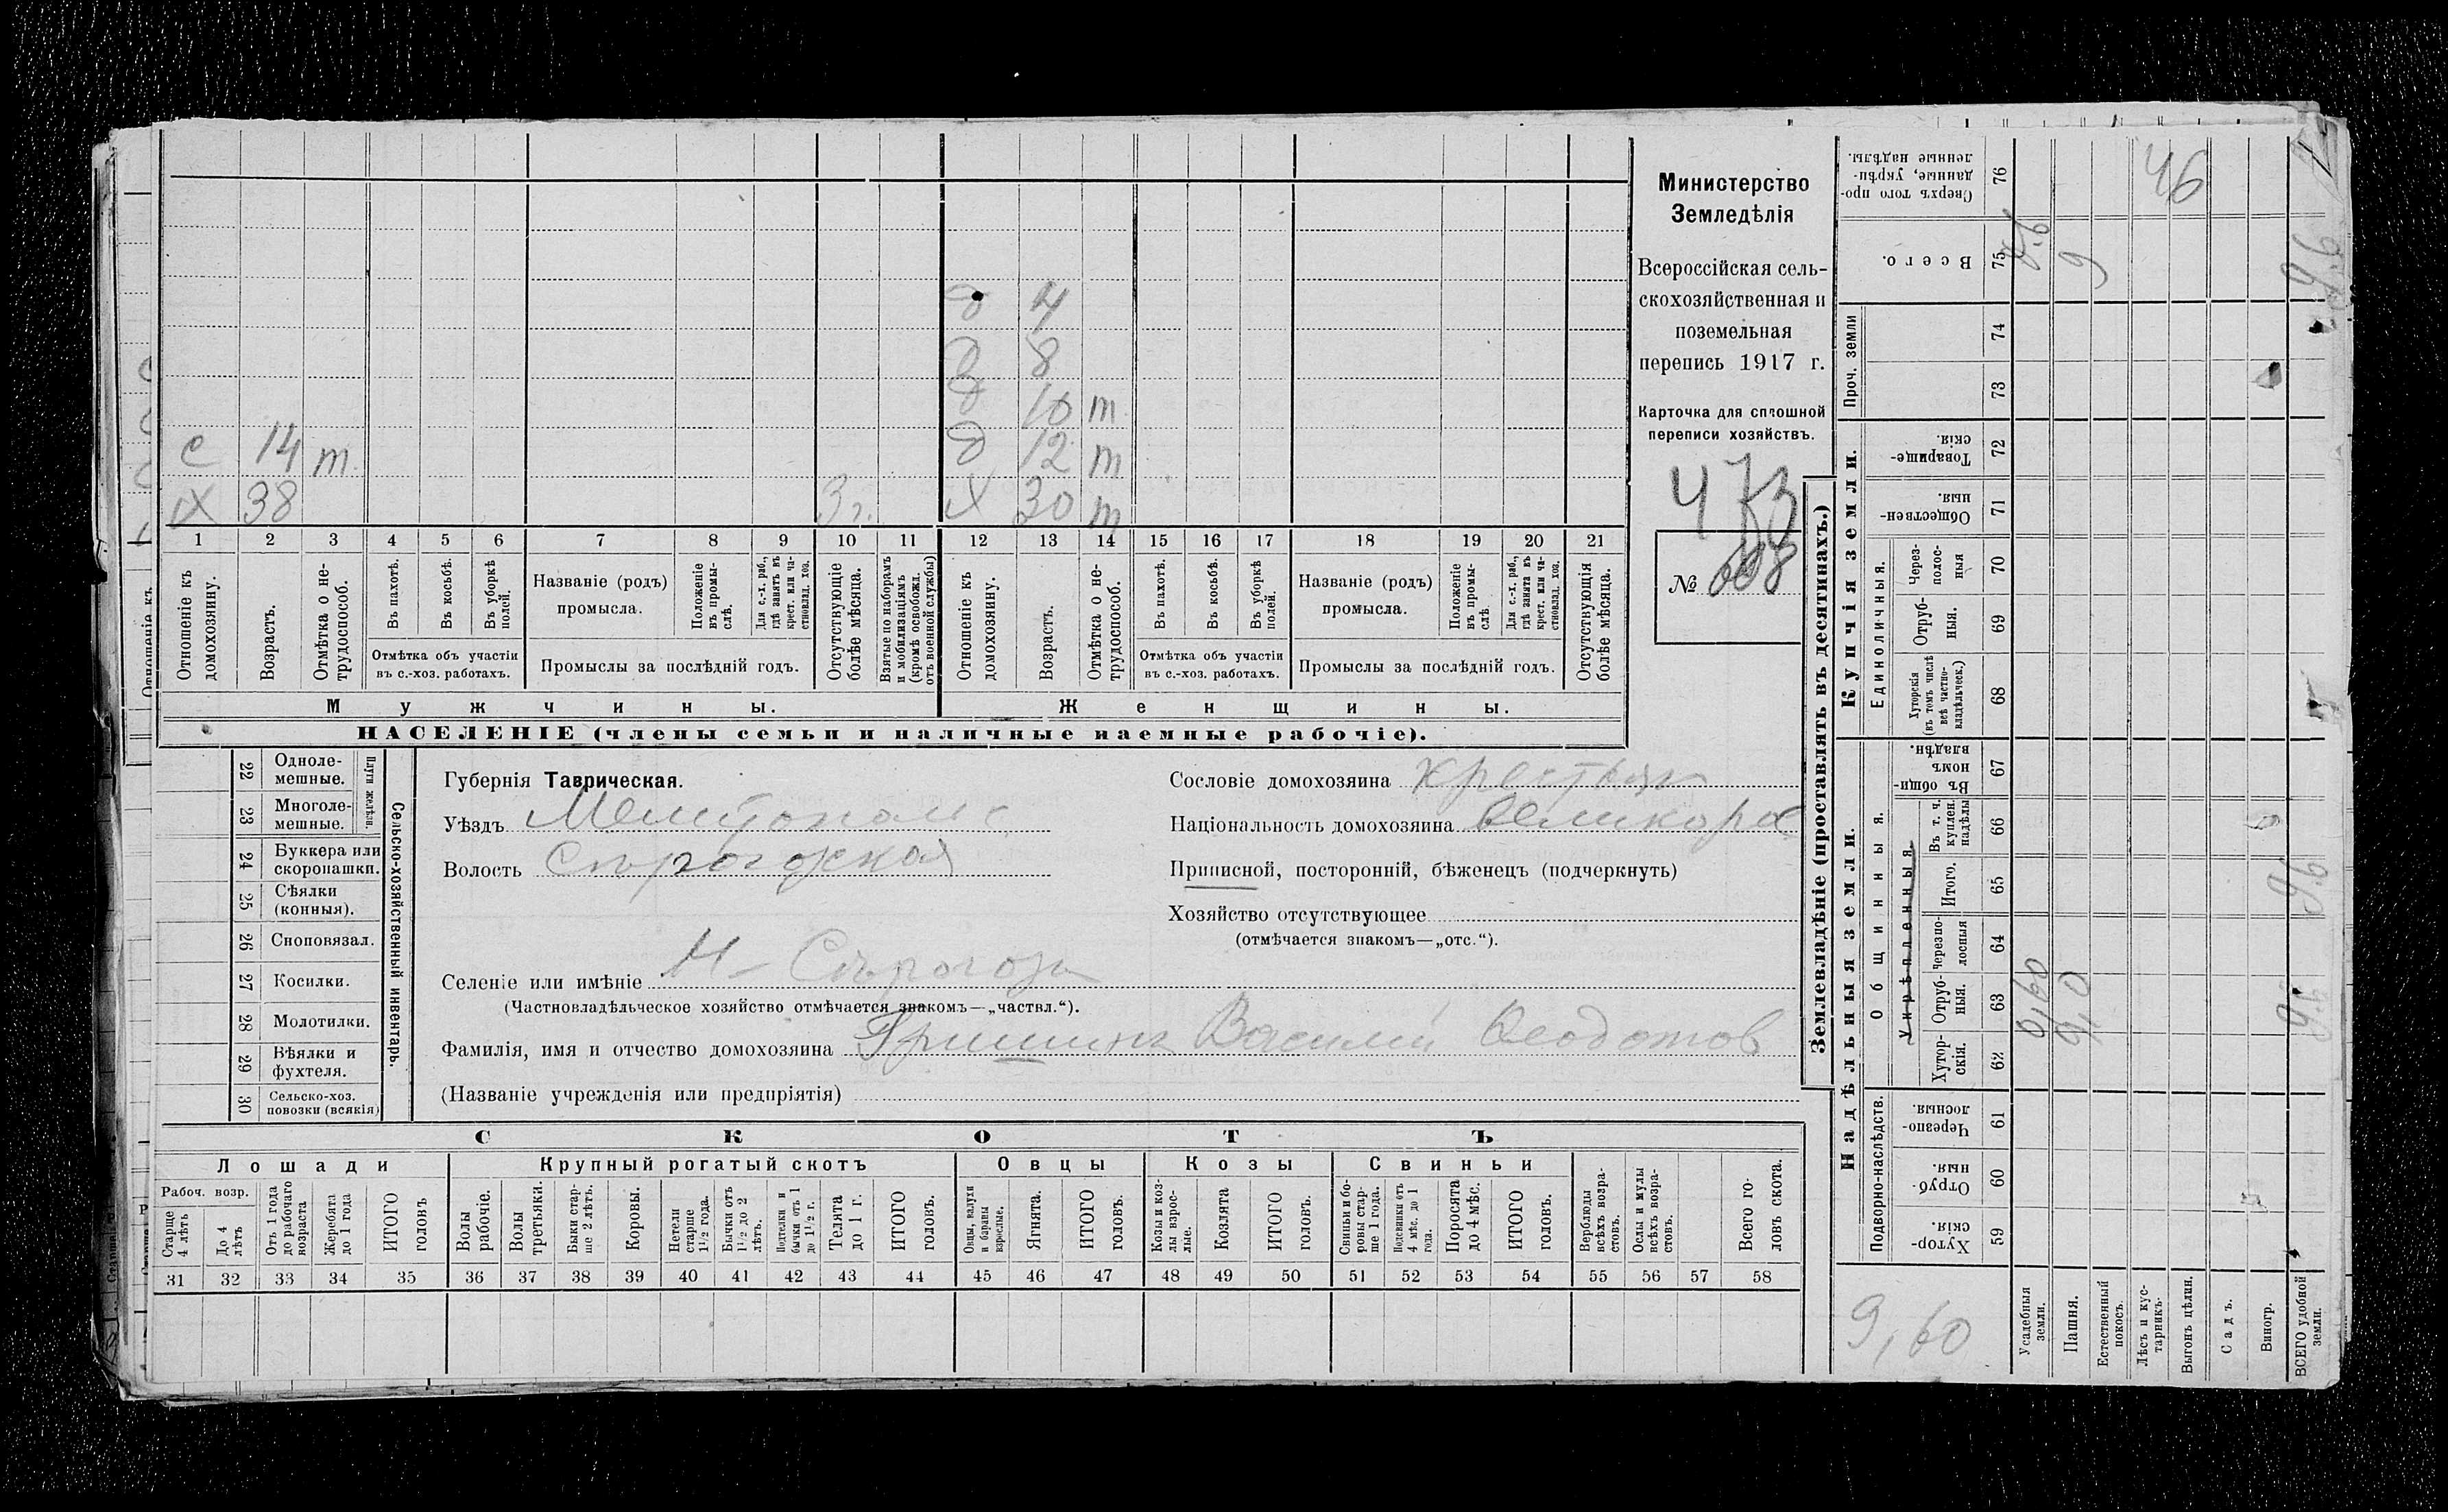 Министерство
Земледѣлія
Всероссійская сель-
скохозяйственная и
поземельная
перепись 1917 г.
Карточка для сплошной
переписи хозяйствъ.
473
№ 608
д 4
д 8
д 10 т
с 14 т д 12 т
х 38 3 г. х 30 т
1 2 3 4 5 6 7 8 9 10 11 12 13 14 15 16 17 18 19 20 21
Отношеніе къ домохозяину.
Возрастъ.
Отмѣтка о не-трудоспособ.
Въ пахотѣ.
Въ косьбѣ.
Въ уборкѣ полей.
Отмѣтка объ участіи
въ с.-хоз. работахъ.
Названіе (родъ)
промысла.
Положеніе въ промы-слѣ.
Для с.-х. раб., гдѣ занятъ въ крест. или ча-стновлад. хоз.
Промыслы за послѣдній годъ.
Отсутствующіе болѣе мѣсяца.
Взятые по наборамъ и мобилизаціямъ (кромѣ освобожд. отъ военной службы)
Отношеніе къ домохозяину.
Возрастъ.
Отмѣтка о не-трудоспособ.
Въ пахотѣ.
Въ косьбѣ.
Въ уборкѣ полей.
Отмѣтка объ участіи
въ с.-хоз. работахъ.
Названіе (родъ)
промысла.
Положеніе въ промы-слѣ
Для с.-х. раб., гдѣ занята въ крест. или ча-стновлад. хоз.
Промыслы за послѣдній годъ.
Отсутствующія болѣе мѣсяца.
Мужчины. Женщины.
НАСЕЛЕНІЕ (члены семьи и наличные наемные рабочіе).
22 Одноле-мешные.
23 Многоле-мешные.
Плуги желѣзн.
24 Буккера или скоропашки.
25 Сѣялки (конныя).
26 Сноповязал.
27 Косилки.
28 Молотилки.
29 Вѣялки и фухтеля.
30 Сельско-хоз. повозки (всякія)
Сельско-хозяйственный инвентарь.
Губернія Таврическая.
Уѣздъ Мелитопольс
Волость Сѣрогозская
Сословіе домохозяина крестьян
Національность домохозяина великорос
Приписной, посторонній, бѣженецъ (подчеркнуть)
Хозяйство отсутствующее
(отмѣчается знакомъ—„отс.“).
Селеніе или имѣніе Н-Сѣрогозы
(Частновладѣльческое хозяйство отмѣчается знакомъ—„частвл.“).
Фамилія, имя и отчество домохозяина Гришин Василий Феодотов
(Названіе учрежденія или предпріятія)
СКОТЪ
Лошади Крупный рогатый скотъ Овцы Козы Свиньи
Рабоч. возр.
Старше 4 лѣтъ
До 4 лѣтъ
Отъ 1 года до рабочаго возраста
Жеребята до 1 года
ИТОГО головъ
Волы рабочіе.
Волы третьяки.
Быки стар-ше 2 лѣтъ.
Коровы.
Нетели старше 1 1/2 года.
Бычки отъ 1 1/2 до 2 лѣтъ.
Подтелки и бычки отъ 1 до 1 1/2 г.
Телята до 1 г.
ИТОГО головъ.
Овцы, валухи и бараны взрослые.
Ягнята.
ИТОГО головъ.
Козы и коз-лы взрос-лые.
Козлята
ИТОГО головъ.
Свиньи и бо-ровы стар-ше 1 года.
Подсвинки отъ 4 мѣс. до 1 года.
Поросята до 4 мѣс.
ИТОГО головъ.
Верблюды всѣхъ возра-стовъ.
Ослы и мулы всѣхъ возра-стовъ.
Всего го-ловъ скота.
31 32 33 34 35 36 37 38 39 40 41 42 43 44 45 46 47 48 49 50 51 52 53 54 55 56 57 58
Землевладѣніе (проставлять въ десятинахъ.)
Надѣльныя земли. Купчія земли. Проч. земли
Подворно-наслѣдств.
Общинныя.
Укрѣпленныя
Единоличныя.
Хутор-скія. 59
Отруб-ныя. 60
Черезпо-лосныя. 61
Хутор-скія. 62
Отруб-ныя. 63
Черезпо-лосныя 64
Итого. 65
Въ т. ч. куплен. надѣлы 66
Въ общи-номъ владѣн. 67
Хуторскія (въ томъ числѣ всѣ частно-владѣльческ.) 68
Отруб-ныя. 69
Через-полос-ныя 70
Обществен-ныя. 71
Товарище-скія. 72
73
74
Всего. 75
Сверхъ того про-данные, укрѣп-ленные надѣлы. 76
Усадебныя земли.
Пашня.
Естественный покосъ.
Лѣсъ и кус-тарникъ.
Выгонъ цѣлин.
Садъ.
Виногр.
ВСЕГО удобной земли.
9,60
0,60
9,0
9
46
9.6
9.6